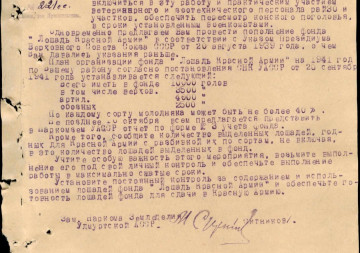 включиться в эту работу и практическим участием
ветеринарного и зоотехнического персонала райзо и
участков, обеспечить пересмотр конского поголовья,
в сроки установленные военкоматами.
Одновременно предлагаем вам провести пополнение фонда
" Лошадь Красной Армии", в соответствии с указом президиума
Верховного Совета Союза ССР от 20 августа 1939 года, о чем
Вам давались указания раньше.
План организации фонда "Лошадь Красной Армии" на 1941 год
по Вашему району согласно постановления СНК УАССР от 20 сентяб
1941 года устанавливается следующий:
всего иметь в фонде голов
в том числе верхов. 3500 "
Артил. 4000 "
обозных 2500 "
По каждому сорту молодняка может быть не более 40 %.
Не позднее октября всем предлагается представить
в Наркомзем УАССР отчет по форме № 3 учета фонда.
Кроме того, сообщите количество выделенных лошадей, год-
ных для Красной Армии с разбивкой их по сортам, не включая,
в это количество лошадей выделенных в фонд.
Учтите особую важность этого мероприятия, возьмите выпол-
нение его под свой личный контроль и обеспечьте выполнение
работы в максимально сжатые сроки.
Установите постоянный контроль за содержанием и исполь-
зованием лошадей фонда " Лошадь Красной Армии" и обеспечьте го-
товность лошадей фонда для сдачи в Красную Армию.
Зам. Наркома Земледелия
Удмуртской АССР.